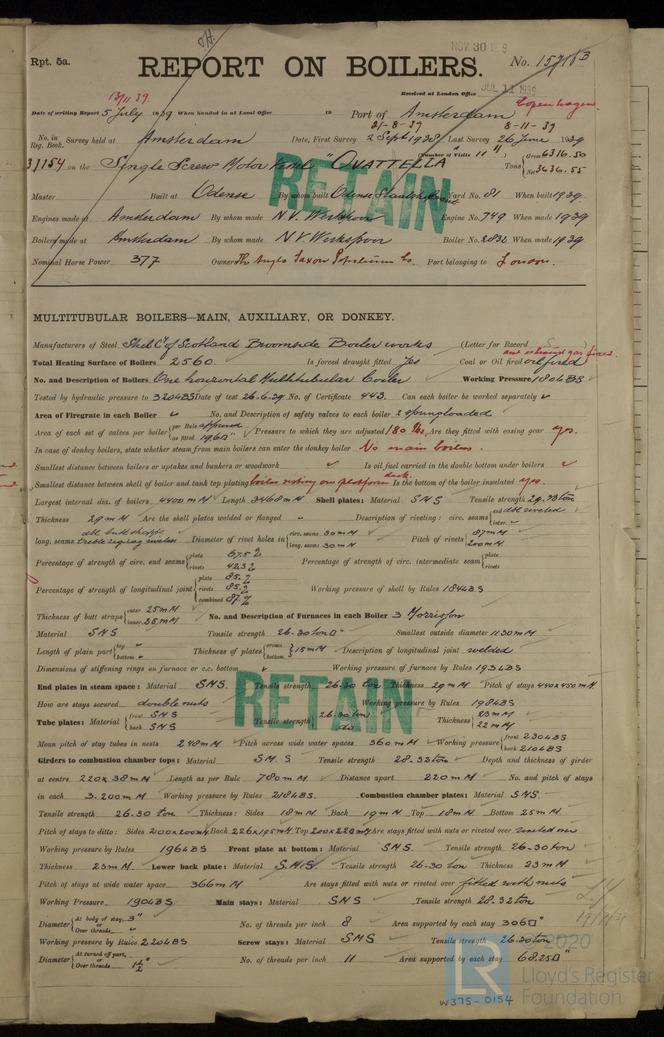 NOV 30 9
Rpt. 5a. REPORT ON BOILERS. No. 15718B
13/11 39. Received at London Office JUL 11 1939
Date of writing Report 5 July 1939 When handed in at Local Office 19 Port of Amsterdam Copenhagen
21-8-39 8-11-39
No. in Reg. Book. Survey held at Amsterdam Date, First Survey 2 Sept 1938 Last Survey 26 June 1939
(Number of Visits 11 )
31154 on the Single Screw Motor Vessel "OVATELLA" Tons Gross 6316.50 Net 3636.55
Master Built at Odense By whom built Odense Yard No. 81 When built 1939
Engines made at Amsterdam By whom made N.V. Werkspoor Engine No. 749 When made 1939
Boilers made at Amsterdam By whom made N.V. Werkspoor Boiler No. 2832 When made 1939
Nominal Horse Power 377 Owners The Anglo Saxon Petroleum Co. Port belonging to London.
RETAIN
MULTITUBULAR BOILERS—MAIN, AUXILIARY, OR DONKEY.
Manufacturers of Steel Steel Cy of Scotland Broomside Boiler works (Letter for Record S )
Total Heating Surface of Boilers 2560 Is forced draught fitted Yes Coal or Oil fired oil fired and exhaust gas fired.
No. and Description of Boilers One horizontal Multitubular boiler Working Pressure 180 LBS
Tested by hydraulic pressure to 320 LBS Date of test 26.6.39 No. of Certificate 443. Can each boiler be worked separately
Area of Firegrate in each Boiler No. and Description of safety valves to each boiler 2 springloaded
Area of each set of valves per boiler per Rule approved as fitted 19.60" Pressure to which they are adjusted 180 lbs. Are they fitted with easing gear yes.
In case of donkey boilers, state whether steam from main boilers can enter the donkey boiler No main boilers.
Smallest distance between boilers or uptakes and bunkers or woodwork Is oil fuel carried in the double bottom under boilers
Smallest distance between shell of boiler and tank top plating boiler resting on platform deck Is the bottom of the boiler insulated yes.
Largest internal dia. of boilers 4400 mM Length 3468 mM Shell plates: Material SMS Tensile strength 29.33 ton
Thickness 29 mM Are the shell plates welded or flanged Description of riveting: circ. seams end dble riveted inter.
long. seams dbl butt straps treble zigzag riveted Diameter of rivet holes in circ. seams 30 mM long. seams 30 mM Pitch of rivets 87 mM 200 mM
Percentage of strength of circ. end seams plate 67.5% rivets 42.3% Percentage of strength of circ. intermediate seam plate rivets
Percentage of strength of longitudinal joint plate 85.% rivets 85.% combined 87.% Working pressure of shell by Rules 184 LBS
Thickness of butt straps outer 25 mM inner 25 mM No. and Description of Furnaces in each Boiler 3 Morrison
Material SMS Tensile strength 26-30 ton" Smallest outside diameter 1130 mM
Length of plain part top bottom Thickness of plates crown bottom 15 mM Description of longitudinal joint welded
Dimensions of stiffening rings on furnace or c.c. bottom Working pressure of furnace by Rules 193 LBS
End plates in steam space: Material SMS. Tensile strength 26-30 ton Thickness 29 mM Pitch of stays 440x450 mM
How are stays secured double nuts Working pressure by Rules 198 LBS
RETAIN
Tube plates: Material front SMS back SMS Tensile strength 26-30 ton do Thickness 23 mM 22 mM
Mean pitch of stay tubes in nests 248 mM Pitch across wide water spaces 360 mM Working pressure front 230 LBS back 210 LBS
Girders to combustion chamber tops: Material SMS Tensile strength 28.32 ton Depth and thickness of girder
at centre 220 x 38 mM Length as per Rule 780 mM Distance apart 220 mM No. and pitch of stays
in each 3. 200 mM Working pressure by Rules 218 LBS. Combustion chamber plates: Material SMS.
Tensile strength 26.30 ton Thickness: Sides 18 mM Back 19 mM Top 18 mM Bottom 25 mM
Pitch of stays to ditto: Sides 200x200 mM Back 226x195 mM Top 200x220 mM Are stays fitted with nuts or riveted over riveted over
Working pressure by Rules 196 LBS Front plate at bottom: Material SMS. Tensile strength 26-30 ton
Thickness 23 mM. Lower back plate: Material SMS. Tensile strength 26-30 ton Thickness 23 mM
Pitch of stays at wide water space 366 mM Are stays fitted with nuts or riveted over fitted with nuts
Working Pressure 190 LBS Main stays: Material SMS Tensile strength 28.32 ton
Diameter At body of stay, or Over threads 3" No. of threads per inch 8 Area supported by each stay 306"
Working pressure by Rules 220 LBS Screw stays: Material SMS Tensile strength 26.30 ton
Diameter At turned off part, or Over threads 1½" No. of threads per inch 11 Area supported by each stay 68.25"
©2020
LR
Lloyd's Register
Foundation
W375-0154